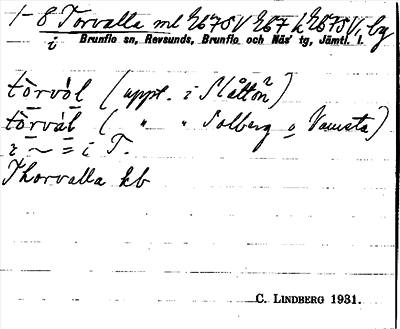 1-8 Torvalla ml Eb7SV Eb7 h Eb7SV, by
i Brunflo sn, Revsunds, Brunflo och Näs' tg, Jämtl. l.
tòrvòl (uppt. i Slåtton)
tòrvàl ( " " Solberg o Vamsta)
i ~ = i T.
Thorvalla kb
C. LINDBERG 1931.